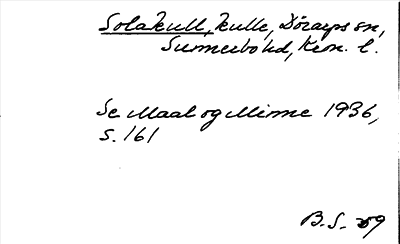 Solakull, kulle, Dörarps sn,
Sunnerbo hd, Kron. l.
Se Maal og Minne 1936,
s. 161
B.S. 59